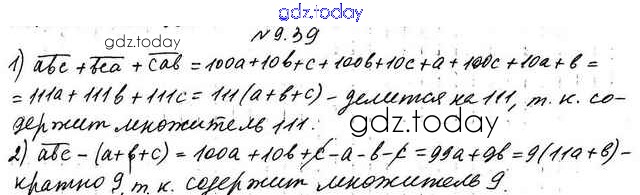 gdz.today
№9.39
gdz.today
1) abc + bca + cab = 100a+10b+c+100b+10c+a+100c+10a+b =
= 111a+111b+111c = 111(a+b+c) - делится на 111, т. к. со-
держит множитель 111.
gdz.today
2) abc - (a+b+c) = 100a+10b+c-a-b-c = 99a+9b = 9(11a+b) -
кратно 9, т. к. содержит множитель 9.